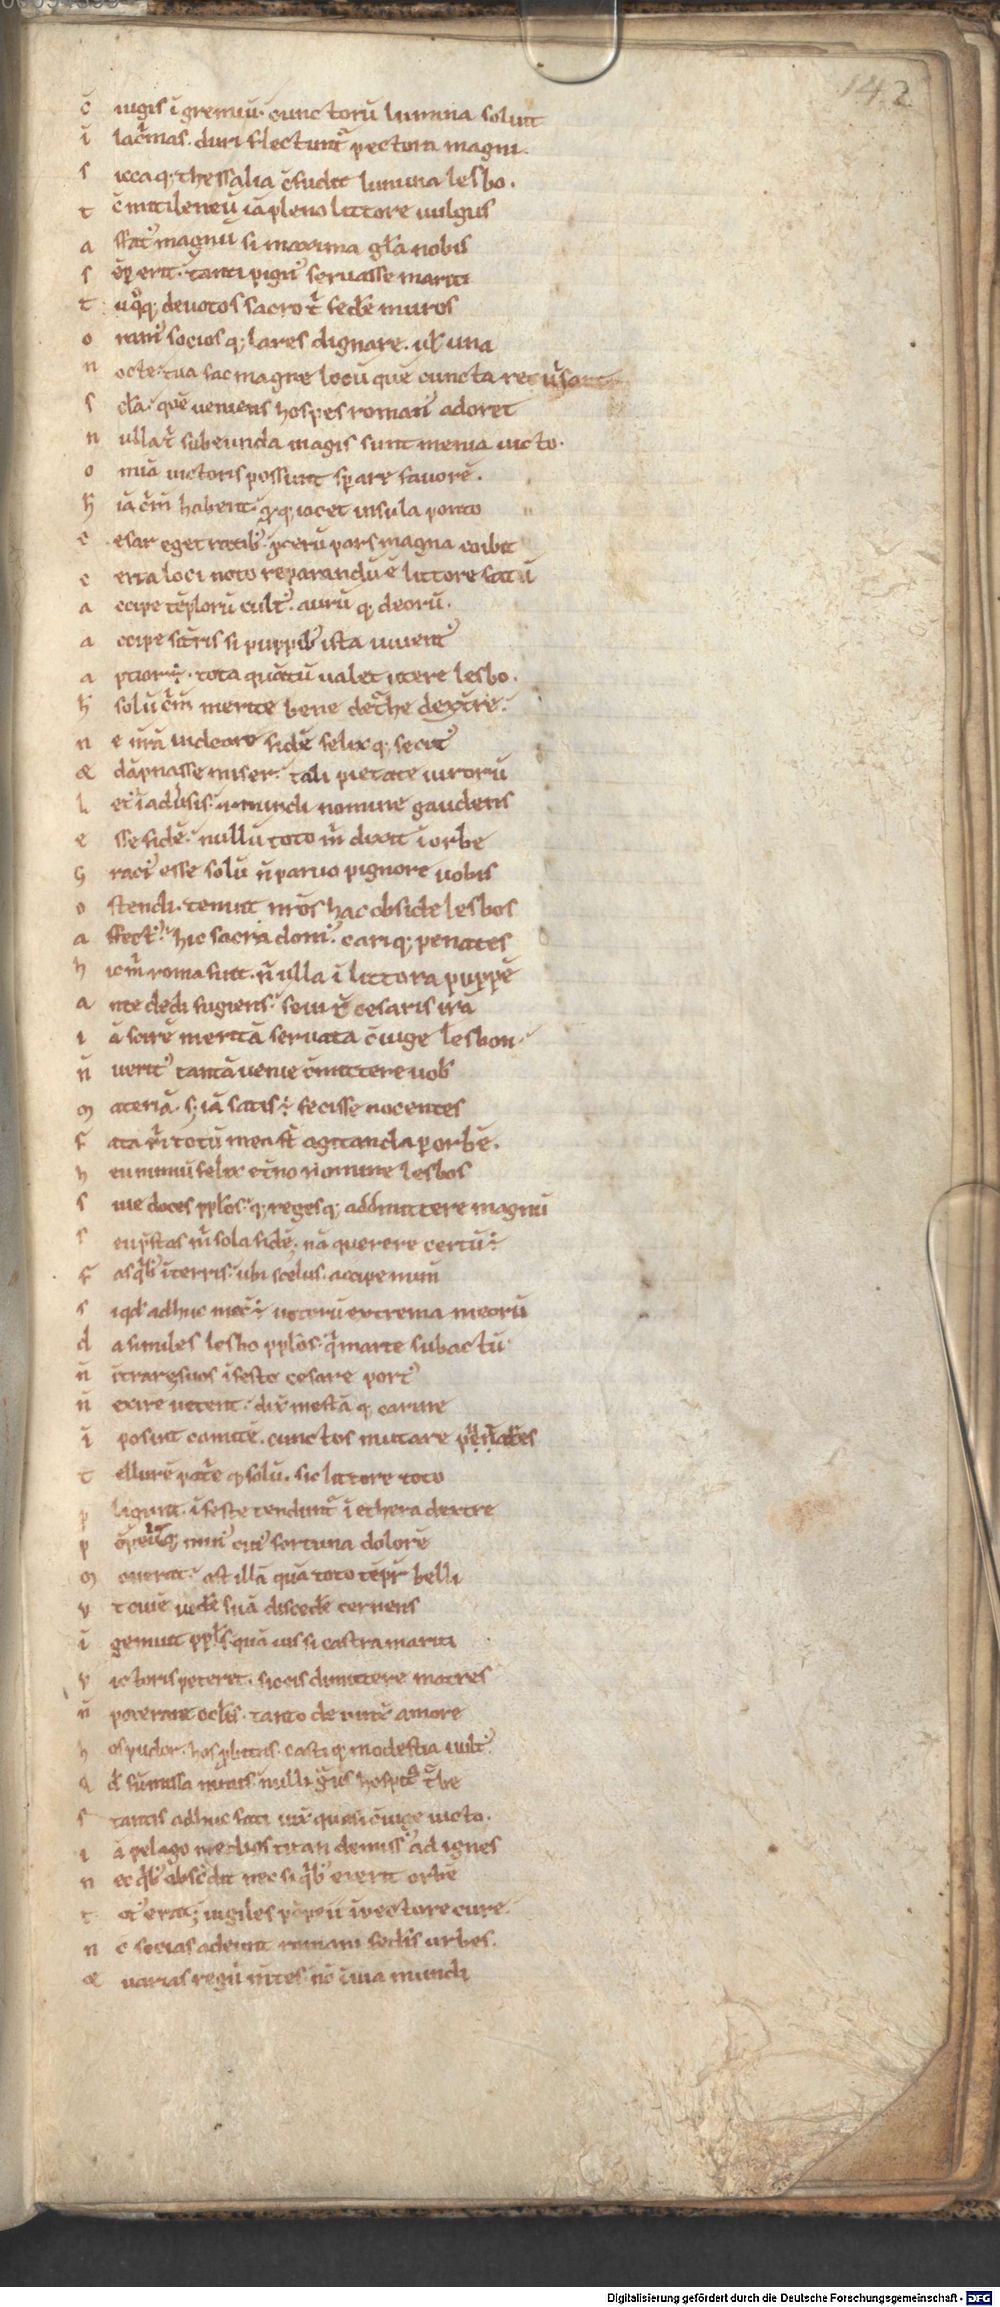 142
c̄ iugis ī gremiū. cunctorū lumina soluit
ī lac̄mas. duri flectunt᷑ pectora magni.
s iccaq; thessalia c̄fudit lumina lesbo.
t c̄ mitileneū iā pleno littore uulgus
a ffat᷒ magnū si maxima gl̄a nobis
s ēp erit. tanti pign᷒ seruasse mariti
t u q̊q; deuotos sacro t᷑ fed̄e muros
o ram᷒ sociosq; lares dignare. uł una
n octe. tua fac magne locū quē cuncta reuisant
s cła. quē ueniens hospes roman᷒ adoret
n ulla t᷑ subeunda magis sunt menia uicto.
o mīa uictoris possunt sp̄are fauorē.
h̄ iā c̄m̄ habent. qđq; iacet insula ponto
c esar eget ratib᷒. p̄cerū pars magna coibit
c erta loci noto reparandū ē littore fatū
a ccipe tēplorū cult᷒. aurū q; deorū.
a ccipe si t̄ris si puppib᷒ ista iuuent᷒
a ptior ÷. tota quātū ualet utere lesbo.
h̄ solū c̄m̄ merite bene de t᷑he dext̄e.
n e nrā uideare fidē felixq; secut᷒
& dāpnasse miser. tali pietate uirorū
l et᷒ ī adu̓sis. mundi nomine gaudens
e sse fidē. nullū toto m̄ dixit ī orbe
G rati᷒ esse solū n̄ paruo pignore uobis
o stendi. tenuit nr̄os hac obside lesbos
a ffect᷒. hic sacra dom᷒. cariq; penates
h ic m̄ roma fuit. n̄ ulla ī littora puppē
a nte dedi fugiens. seui t᷑ cesaris irā
i ā scirē meritā seruata c̄iuge lesbon
n̄ uerit᷒ tantā uenie c̄mittere uob̄
m ateriā. s; iā satis ÷ fecisse nocentes
f ata m̄ totū mea st̄ agitanda p orbē.
h eu nimiū felix et̄no nomine lesbos
s iue doces pplos. q; regesq; admittere magnū
s eu p̄stas m̄ sola fidē. nā querere certū ÷
f as qb᷒ ī terris. ubi scelus. accipe num̄
s i qđ adhuc mec̄ ÷ uotorū extrema meorū
d a similes lesbo pplōs. q̄ marte subactū
n̄ ītrare suos īfesto cesare port᷒
n̄ exire uetent. dix̄ mestā q; carine
ī posuit comitē. cunctos mutare
t ellurē pat̄e q; solū. sic littore toto
p langunt. īfeste tendunt᷑ ī ethera dextre
p ōpeiūq; min᷒ cui᷒ fortuna dolorē
m ouerat. ast illā quā toto tēpr̄ belli
v t ciuē uid̄e suā disced̄e cernens
ī gemuit pplś. quā uix si castra mariti
v ictoris peteret. siccis dimittere matres
n̄ poterant oclis. tanto deuinx̄ amore
h os pudor. hos pbitas. castiq; modestia uult᷒.
q đ sūmissa nimis nulli g̊uis hospita t᷑be
s tantis adhuc fati uix̄ quasi c̄iuge uicto.
i ā pelago medios titan demiss᷒ ad ignes
n ec qb᷒ abscōdit nec si qb᷒ exerit orbē
t ot᷒ erat. uigiles pōpeii ī pectore cure
n c̄ socias adeunt romani fed̄is urbes.
& uarias regū m̄tes. nō īuia mundi
Digitalisierung gefördert durch die Deutsche Forschungsgemeinschaft - DFG